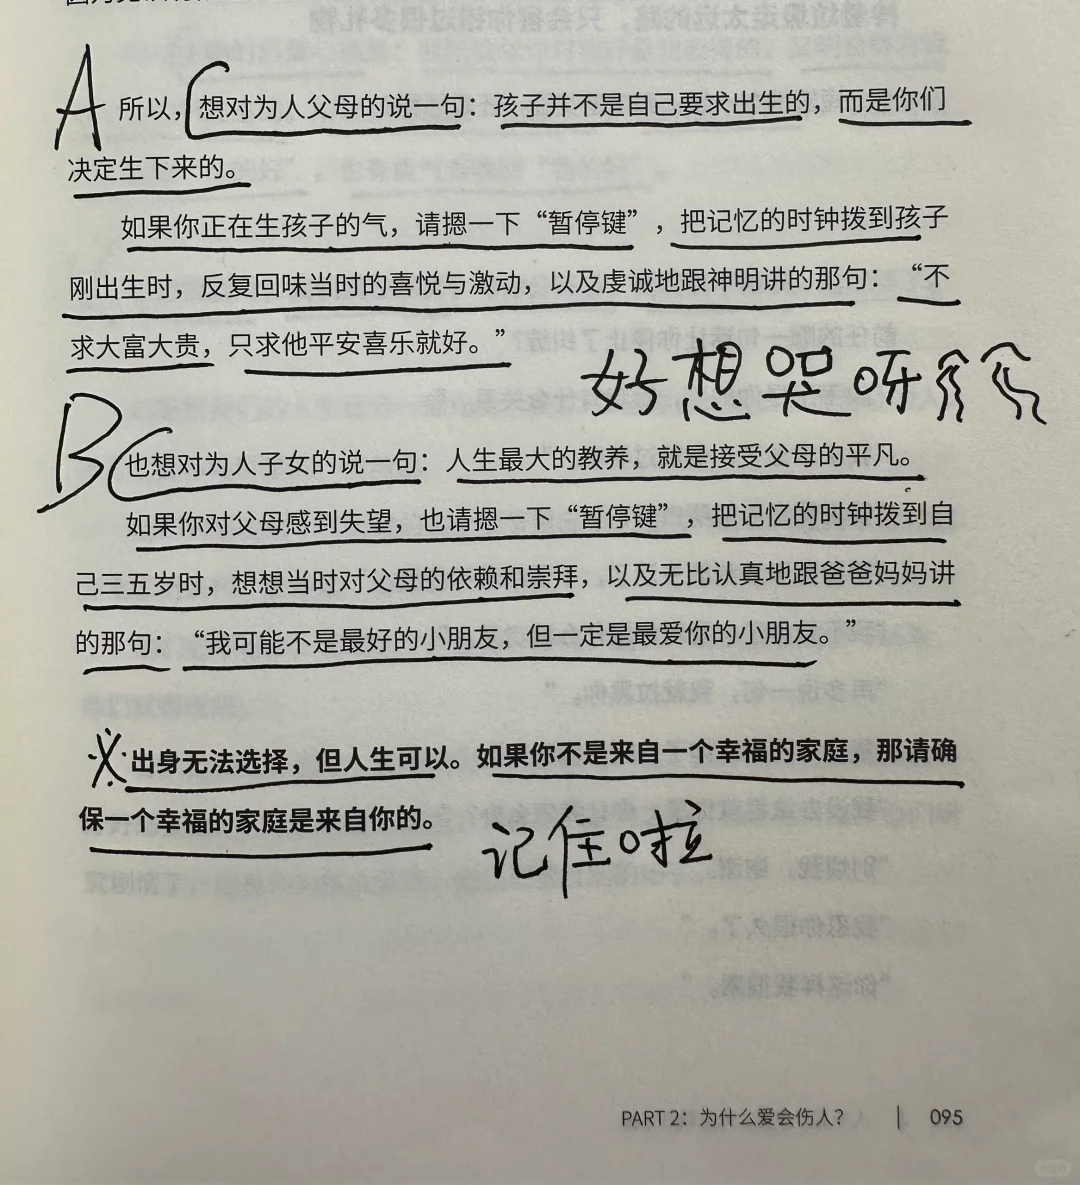 A 所以，想对为人父母的说一句：孩子并不是自己要求出生的，而是你们
决定生下来的。
如果你正在生孩子的气，请摁一下“暂停键”，把记忆的时钟拨到孩子
刚出生时，反复回味当时的喜悦与激动，以及虔诚地跟神明讲的那句：“不
求大富大贵，只求他平安喜乐就好。”
好想哭呀
B 也想对为人子女的说一句：人生最大的教养，就是接受父母的平凡。
如果你对父母感到失望，也请摁一下“暂停键”，把记忆的时钟拨到自
己三五岁时，想想当时对父母的依赖和崇拜，以及无比认真地跟爸爸妈妈讲
的那句：“我可能不是最好的小朋友，但一定是最爱你的小朋友。”
出身无法选择，但人生可以。如果你不是来自一个幸福的家庭，那请确
保一个幸福的家庭是来自你的。
记住啦
PART 2：为什么爱会伤人？ | 095